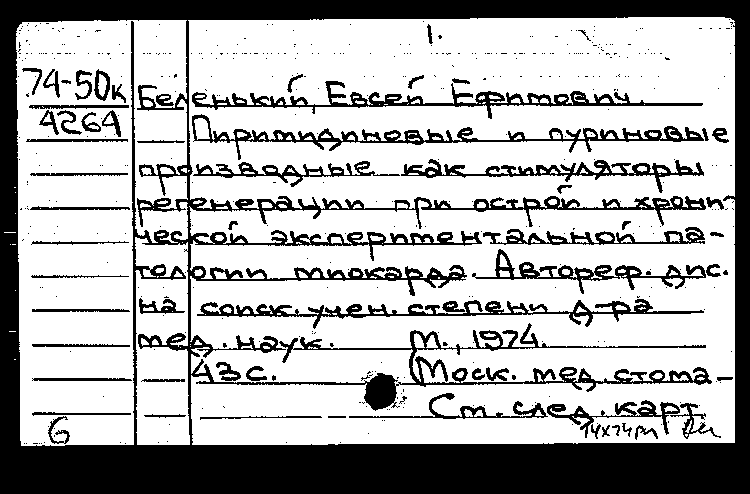 1.
74-50к
4264
Беленький, Евсей Ефимович.
Пиримидиновые и пуриновые
производные как стимуляторы
регенерации при острой и хрони-
ческой экспериментальной па-
тологии миокарда. Автореф. дис.
на соиск. учен. степени д-ра
мед. наук. М., 1974.
43 с. (Моск. мед. стома-
См. след. карт.
6